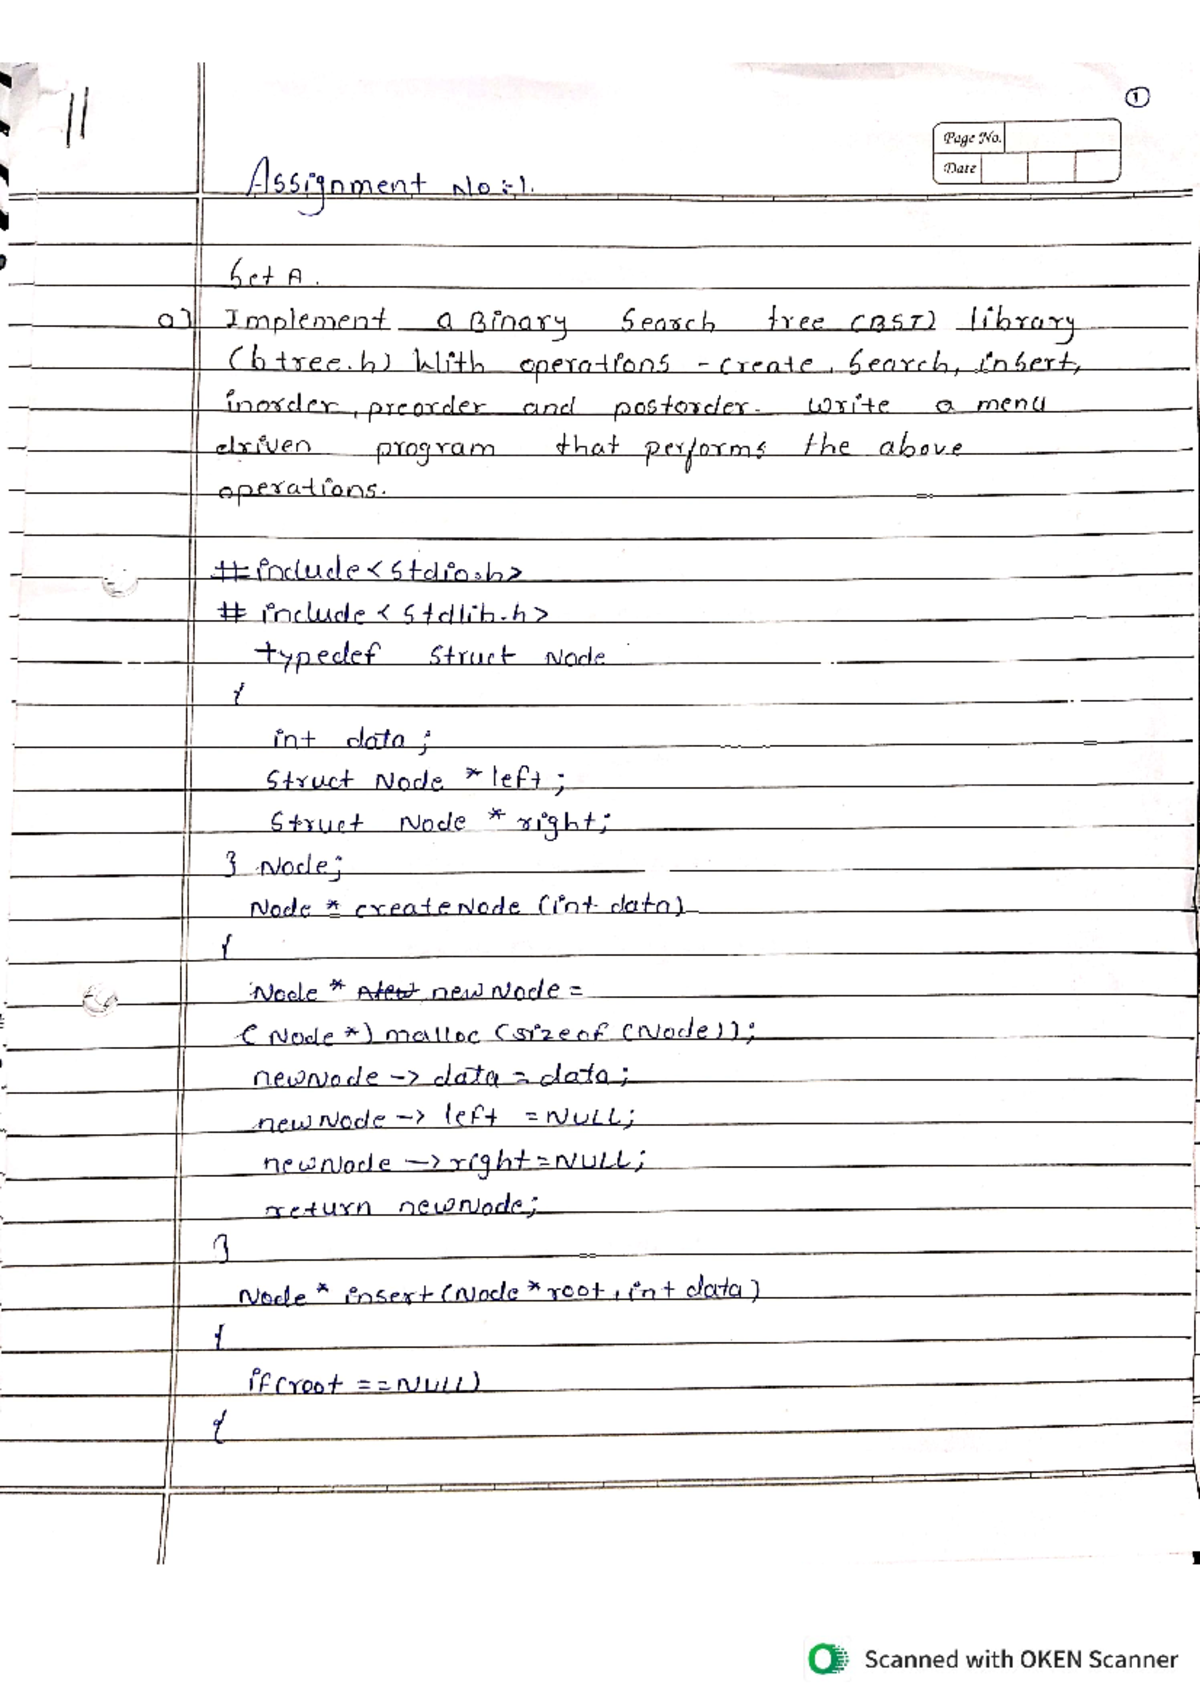 11
①
Page No.
Date
Assignment No :-1.
Set A.
a] Implement a Binary Search tree (BST) library
(btree.h) With operations - create, Search, insert,
inorder, preorder and postorder. Write a menu
driven program that performs the above
operations.
#include<stdio.h>
# include<stdlib.h>
typedef struct Node
{
int data;
Struct Node *left;
Struct Node *right;
} Node;
Node * createNode (int data)
{
Node * newNode =
(Node *) malloc (sizeof (Node));
newNode -> data = data;
newNode -> left = NULL;
newNode -> right = NULL;
return newNode;
}
Node * insert (Node *root, int data)
{
if(root ==NULL)
{
Scanned with OKEN Scanner